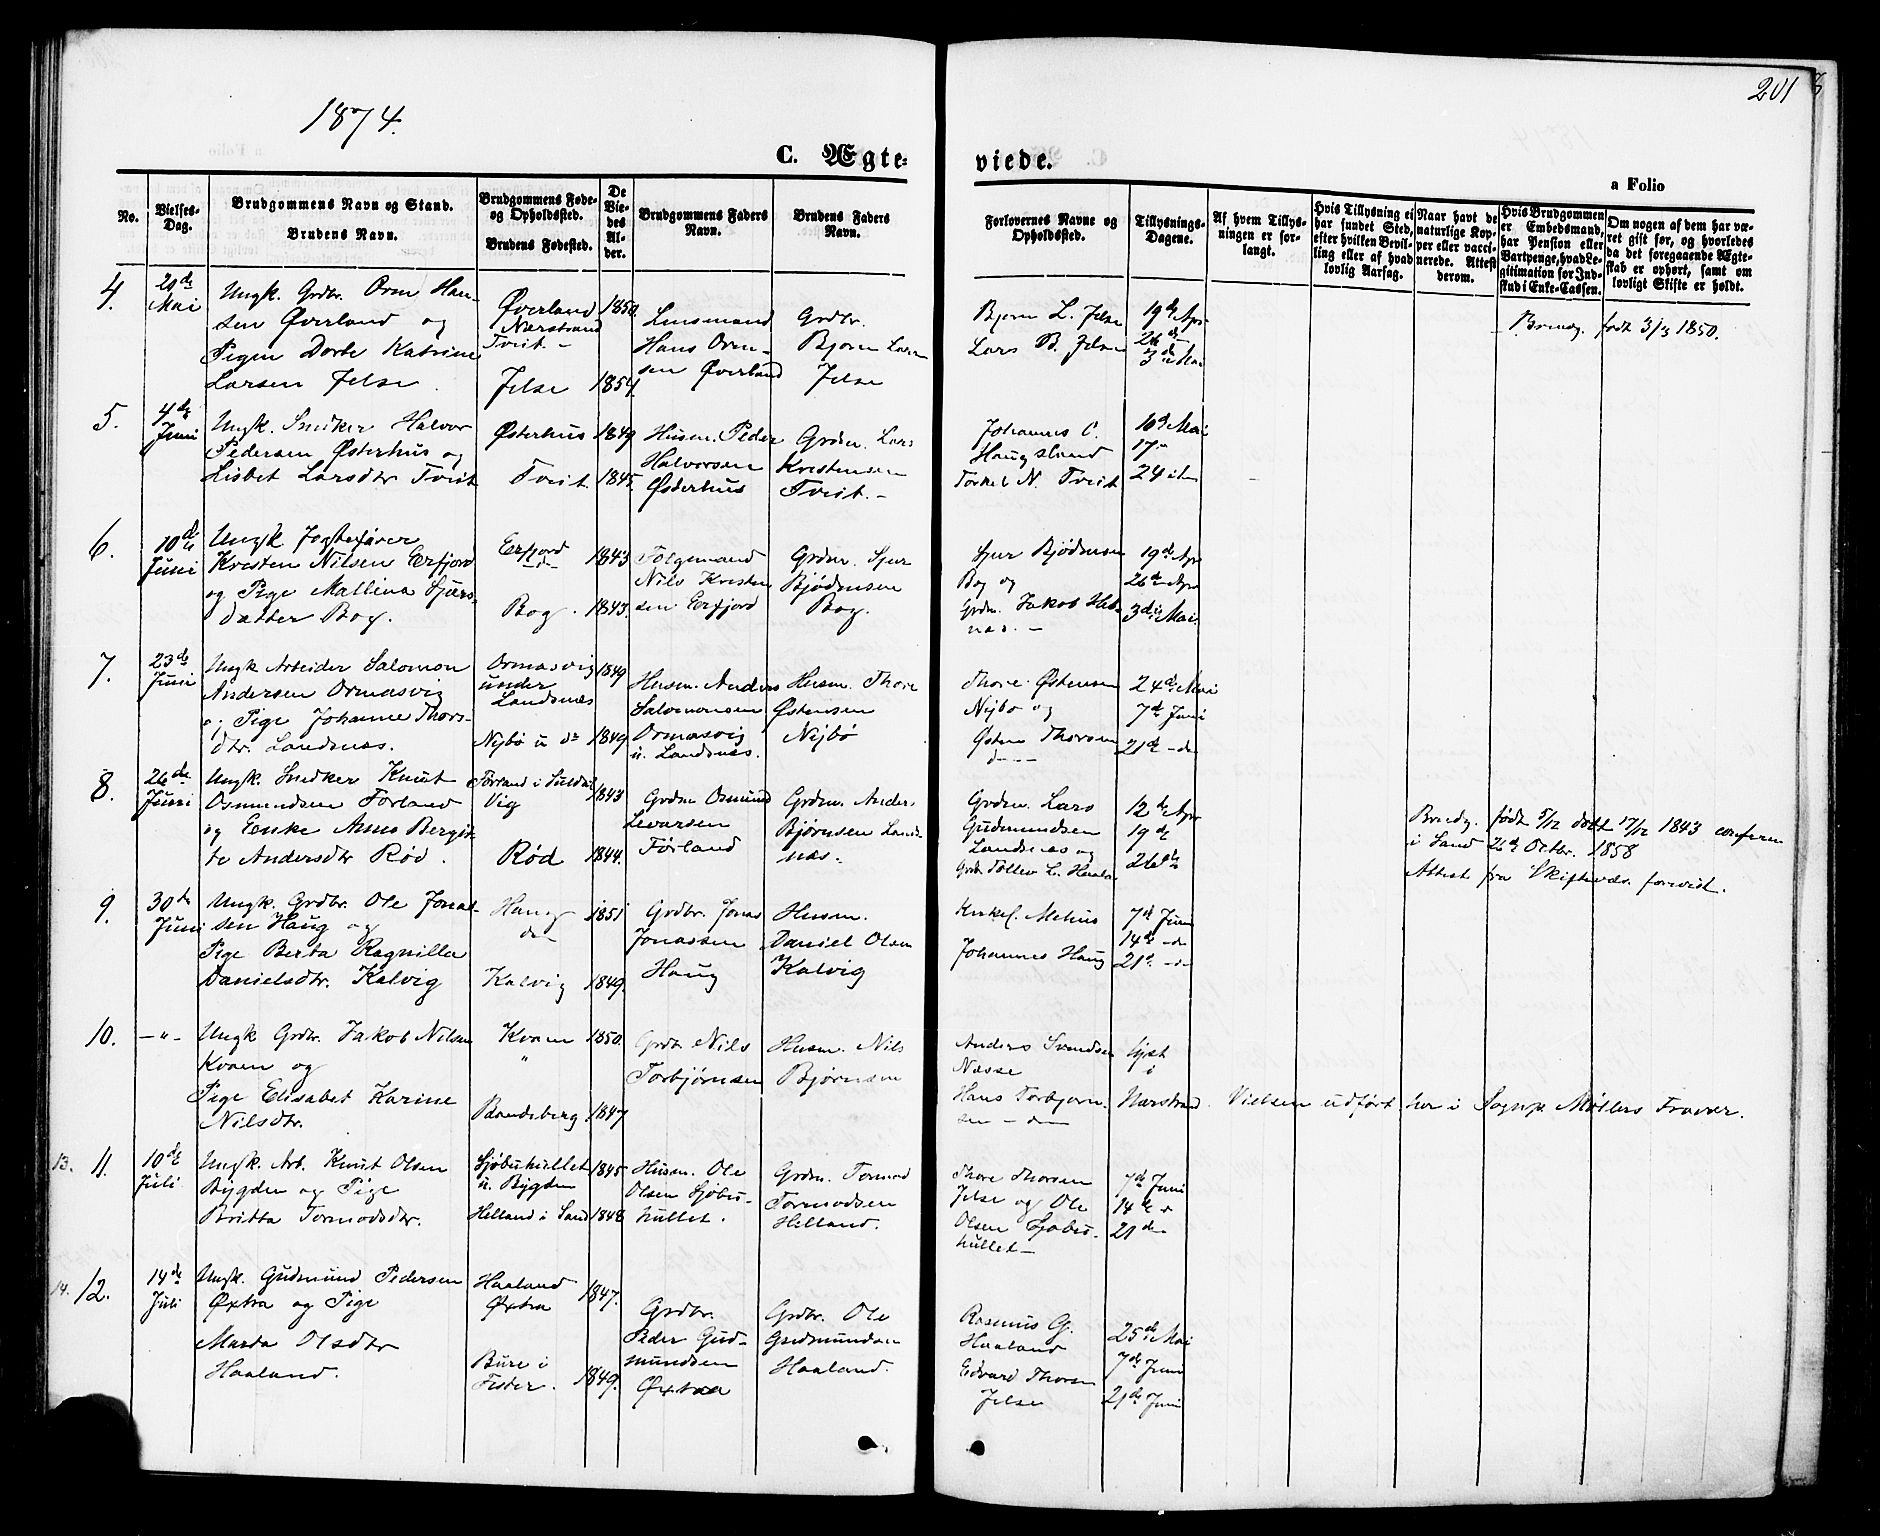 201
1874.
C. Ægte-
viede.
a Folio
No.
Vielses-
Dag.
Brudgommens Navn og Stand.
Brudens Navn.
Brudgommens Føde-
og Opholdssted.
Brudens Fødested.
De
Vie-
des
Al-
der.
Brudgommens Faders
Navn.
Brudens Faders
Navn.
Forlovernes Navne og
Opholdssted.
Tillysnings-
Dagene.
Af hvem Tillys-
ningen er for-
langt.
Hvis Tillysning ei
har fundet Sted,
efter hvilken Bevil-
ling eller af hvad
lovlig Aarsag.
Naar havt de
naturlige Kop-
per eller vacci-
nerede. Attest
derom.
Hvis Brudgommen
er Embedsmand,
har Pension eller
Vartpenge, hvad Le-
gitimation for Ind-
skud i Enke-Cassen.
Om nogen af dem har væ-
ret gift før, og hvorledes
da det foregaaende Ægte-
skab er ophørt, samt om
lovligt Skifte er holdt.
4.
Mai
Ungk. Grdbr. Orm Han-
sen Øverland og
Pigen Dorte Katrine
Larsen Jelse.
Øverland
Nærstrand
Tveit. -
Jelse
1850.
1854.
Lensmand
Hans Orm-
sen Øverland
Grdbr.
Bjorn Larsen
Jelse
Bjorn L. Jelse
Lars B. Jelse
19de Apr
26de
3de Mai
Brudg. født 3/3 1850.
5.
4de
Juni
Ungk. Snedker Halvor
Pedersen Østerhus og
Lisbet Larsdtr Tveit
Østerhus
Tveit.
1849
1845.
Husm. Peder
Halvorsen
Østerhus
Grdm. Lars
Kristensen
Tveit. -
Johannes C.
Haugsland
Torkel N. Tveit
10de Mai
17
24
6.
10de
Juni
Ungk
Kristen Nilsen Erfjord
og Pige Mallina Sjurs-
datter Bog.
Erfjord
Bog.
1843
1843.
Nils Kristen-
sen Erfjord
Grdm. Sjur
Bjødnsen
Bog.
Sjur Bjødnsen
Bog og
Grdm. Jakob Heb-
næs. -
19de Apr
26de Apr
3die Mai.
7.
23de
Juni
Ungk Arbeider Salomon
Andersen Ormasvig
og Pige Johanne Thors-
dtr. Landsnæs.
Ormasvig
under
Landsnæs
Nijbø u do
1849
1849
Husm. Anders
Salomonsen
Ormasvig
u. Landsnæs.
Husm. Thore
Østensen
Nijbø
Thore Østensen
Nijbø og
Østen Thorsen
24de Mai
7de Juni
21de - do
8.
26de
Juni
Ungk. Snedker Knut
Osmundsen Førland
og Enke Anna Bergit-
te Andersdtr Rød.
Førland i Suldal
Vig
Rød
1843
1844.
Grdm Osmund
Levarsen
Førland
Grdm. Anders
Bjørnsen Lands-
næs.
Grdm. Lars
Gudmundsen
Landsnæs og
12de Apr
19de
26de
Brudg. født 5/12 døbt 17/12 1843 conferm
i Sand 26de Octbr. 1858
Attest fra Skiftevæs. forevist.
9.
30te
Juni
Ungk. Grdbr. Ole Jonas-
sen Haug og
Pige Berta Ragnilla
Danielsdtr. Kalvig
Haug
do
Kalvig
1851
1849.
Grdbr. Jonas
Jonassen
Haug
Husm.
Daniel Olsen
Kalvig
Kirkes. Mehus
Johannes Haug
7de Juni
14de - do
21de - do
10.
- " -
Ungk Grdbr. Jakob Nilsen
Kvam og
Pige Elisabet Karine
Nilsdtr.
Kvam
"
Randeberg
1850.
1847
Grdbr Nils
Torbjørnsen
Husm. Nils
Bjørnsen
Anders Svendsen
Næsse
Hans Torbjørn-
sen - do
lyst
i
Nærstrand
Vielsen udført her i Sognp. Møllers Fravær.
13.
11.
10de
Juli
Ungk. Arb. Knut Olsen
Bygden og Pige
Britta Tormodsdtr.
Sjøbuhullet
u. Bygden
Helland i Sand
1845
1848
Husm. Ole
Olsen Sjøbu-
hullet.
Grdm. Tormod
Tormodsen
Helland.
Thore Thorsen
Jelse og Ole
Olsen Sjøbu-
hullet -
7de Juni
14de
21 de
14.
12.
14de
Juli
Ungk. Gudmund Pedersen
Øxtra og Pige
Marta Olsdtr
Haaland.
Haaland
Øxtra
Bure i
Fister.
1847.
1849.
Grdbr.
Peder Gud-
mundsen
Øxtraa
Grdbr. Ole
Gudmundsen
Haaland.
Rasmus G.
Haaland
Edvard Thorsen
Jelse
25de Mai
7de Juni
21de Juni